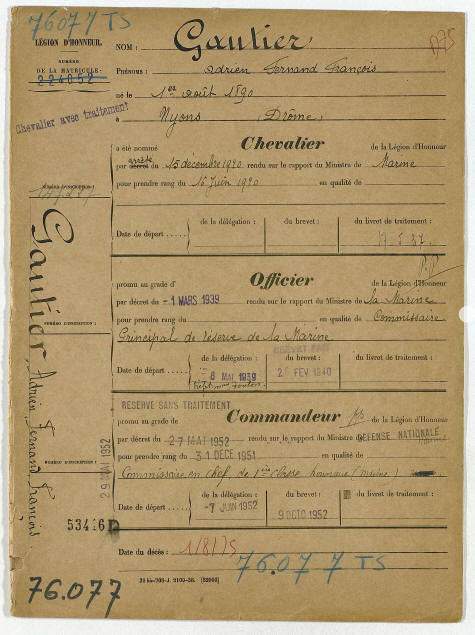 76077 TS
LÉGION D'HONNEUR.
NUMÉRO
DE LA MATRICULE:
224052
Chevalier avec traitement
NOM : Gautier
D75
PRÉNOMS : Adrien Fernand François
né le 1er Août 1890
à Nyons (Drôme)
Chevalier
a été nommé de la Légion d'Honneur
par décret du arrêté 15 décembre 1920 rendu sur le rapport du Ministre de Marine
pour prendre rang du 16 Juin 1920 en qualité de
NUMÉRO D'INSCRIPTION :
de la délégation : du brevet : du livret de traitement :
Date de départ
19.5.37.
Officier
promu au grade d' de la Légion d'Honneur
par décret du -1 MARS 1939 rendu sur le rapport du Ministre de la Marine
pour prendre rang du en qualité de Commissaire
NUMÉRO D'INSCRIPTION :
Principal de réserve de la Marine
de la délégation : du brevet : du livret de traitement :
Date de départ 8 MAI 1939 26 FEV 1940
RÉSERVE SANS TRAITEMENT
Commandeur
promu au grade de de la Légion d'Honneur
par décret du 27 MAI 1952 rendu sur le rapport du Ministre de DEFENSE NATIONALE
pour prendre rang du 31 DEC 1951 en qualité de
NUMÉRO D'INSCRIPTION :
Commissaire en chef de 1ère classe
de la délégation : du brevet : du livret de traitement :
Date de départ -7 JUIN 1952 9 OCTO 1952
Gautier, Adrien, Fernand François.
29 MAI 1952
53416 D
Date du décès : 1/8/75
76.077 TS
76.077